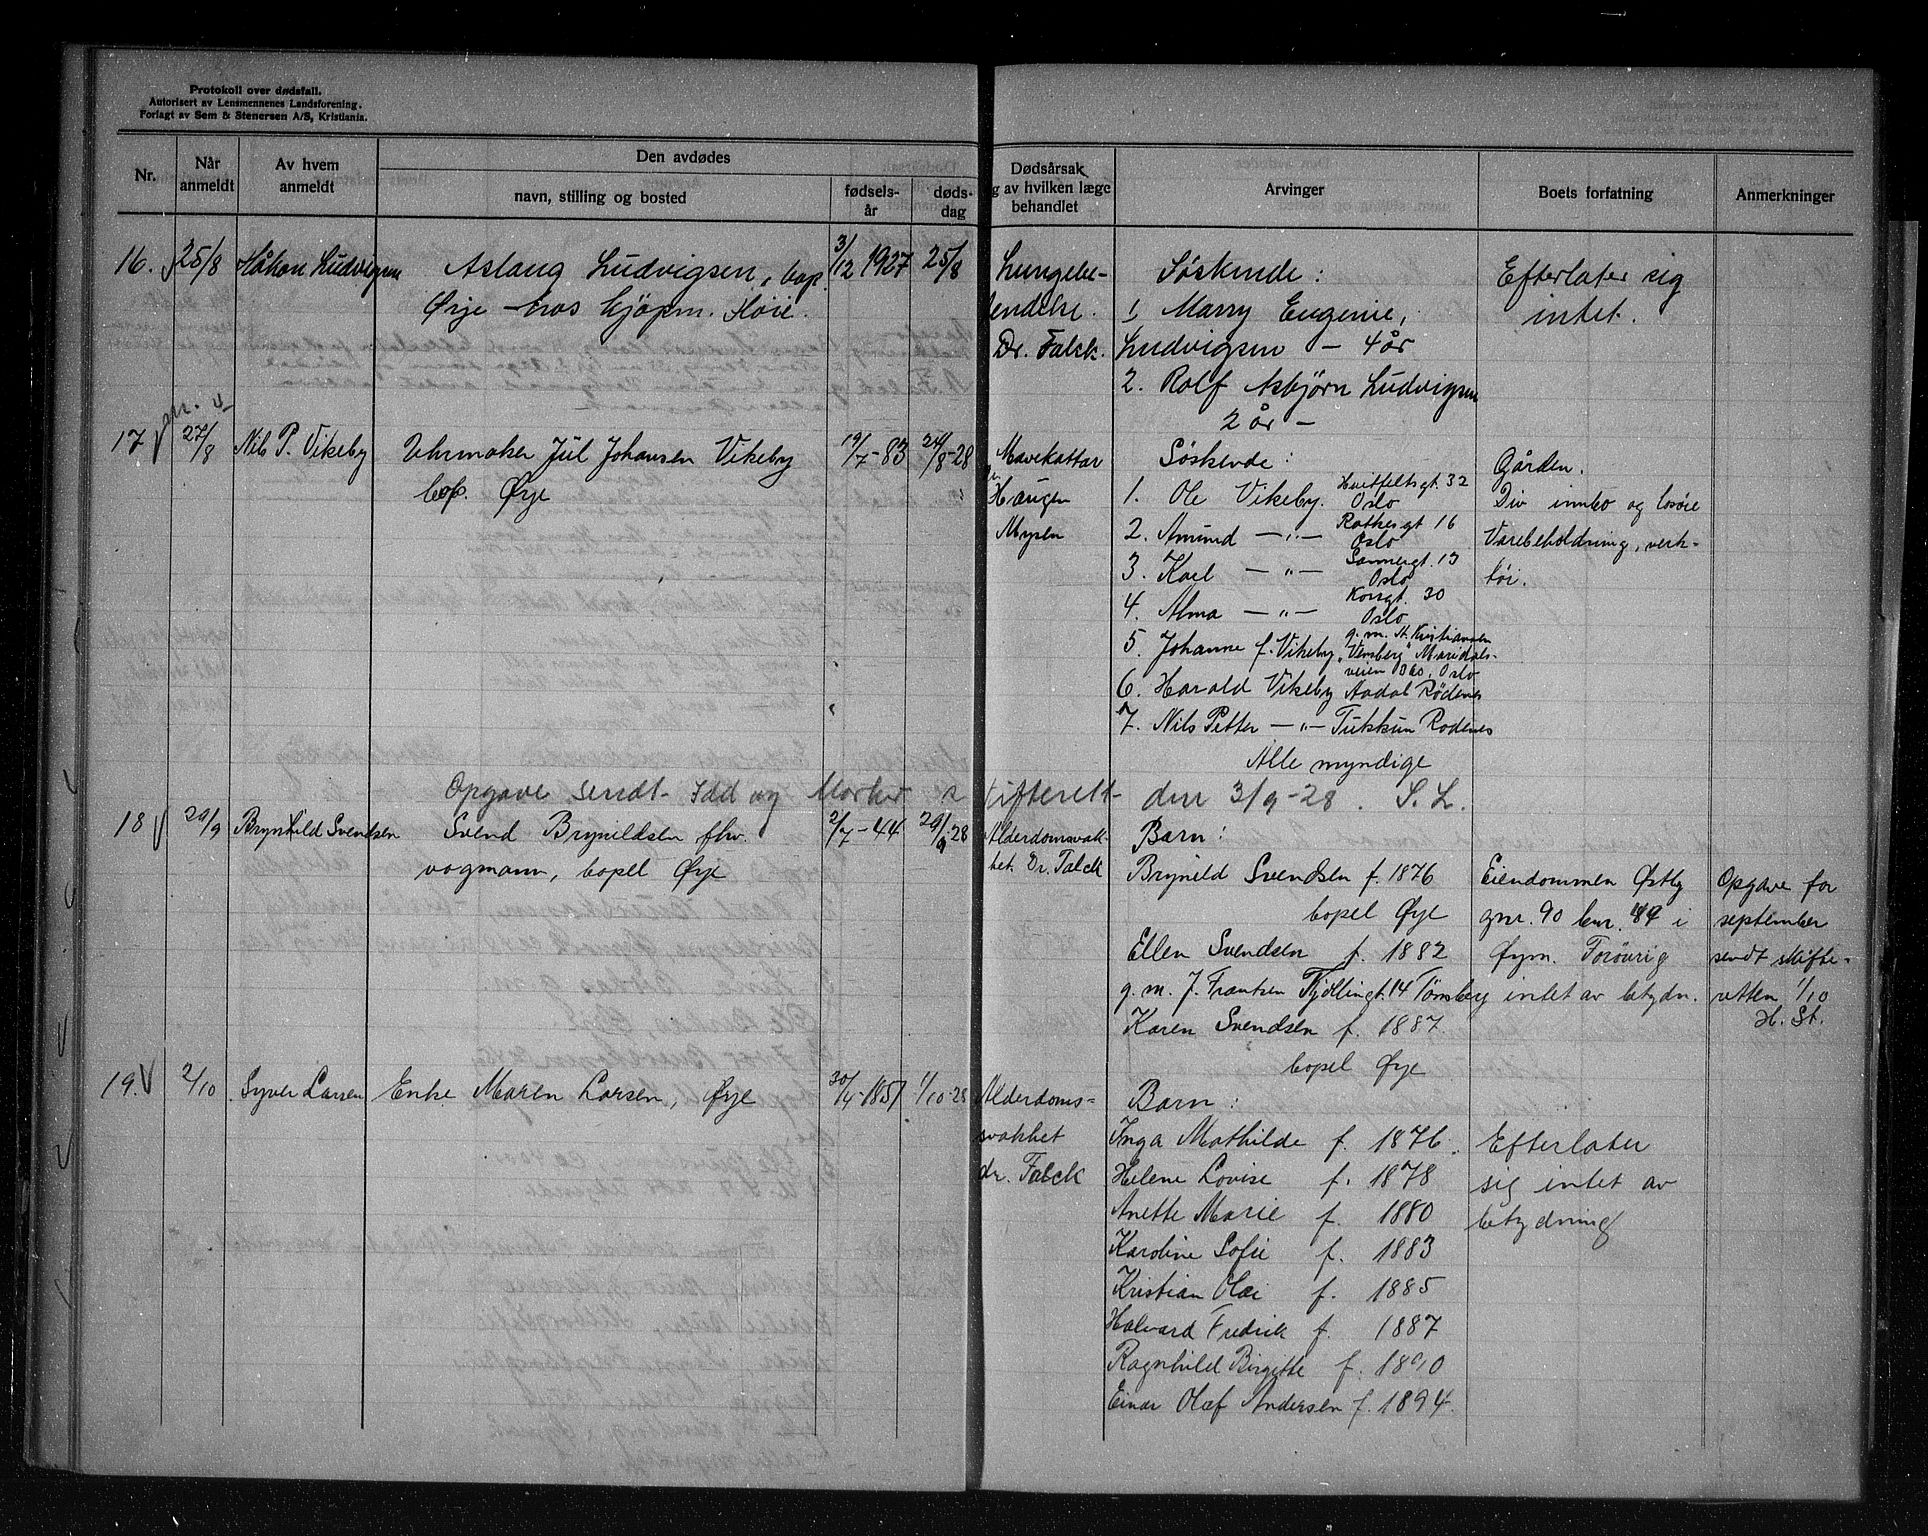 Protokoll over dødsfall.
Autorisert av Lensmennenes Landsforening.
Forlagt av Sem & Stenersen A/S, Kristiania.
Nr.
Når anmeldt
Av hvem anmeldt
Den avdødes
navn, stilling og bosted
fødsels-år
døds-dag
Dødsårsak
g av hvilken læge
behandlet
Arvinger
Boets forfatning
Anmerkninger
16. 25/8 Håkon Ludvigsen Aslaug Ludvigsen, bop. 3/12 1927 25/8 Lungebe- Søskende: Efterlater sig
Ørje hos kjøpm. Høie. tendelse. 1 Marry Eugenie, intet.
Dr. Falck. Ludvigsen - 4 år
2. Rolf Asbjørn Ludvigsen
2 år -
17 27/8 Nils P. Vikeby Uhrmaker Jul Johansen Vikeby 19/7-83 24/8-28 Mavekattar Søskende: Gården.
bop. Ørje Dr. Haugen 1. Ole Vikeby. Huitfeltsgt. 32 Oslo Div innbo og løsøre
Mysen 2. Amund -"- Rathkesgt 16 Oslo Varebeholdning, verk-
3. Karl -"- Sannergt. 13 Oslo tøi.
4. Alma -"- Korsgt. 30 Oslo
5. Johanne f. Vikeby g. m. M. Kristiansen "Vensberg" Maridals-veien Oslo
6. Harald Vikeby Aadal Rødenes
7. Nils Petter -"- Tukkun Rødenes
Alle myndige
Opgave sendt Idd og Marker skifterett den 3/9-28. S. L.
18 29/9 Brynhild Svendsen Svend Brynildsen fhv. 2/7-44 29/9-28 Alderdomsvak- Barn:
vogmann, bopel Ørje het. Dr. Falck Brynild Svendsen f. 1876 Eiendommen Østby Opgave for
bopel Ørje gnr. 90 bnr. 49 i september
Ellen Svendsen f. 1882 Øym. Forøvrig sendt skifte-
g. m. J. Frantsen Fjellingt. 14 Tønsberg intet av betydn. retten 1/10
Karen Svendsen f. 1887. H. St.
bopel Ørje
19. 2/10 Syver Larsen Enke Maren Larsen, Ørje 30/4-1851 1/10-28 Alderdoms- Barn:
svakhet Inga Mathilde f. 1876. Efterlater
dr. Falck Helene Lovise f. 1878 sig intet av
Anette Marie f. 1880 betydning
Karoline Sofie f. 1883
Kristian Olai f. 1885
Halvard Fredrik f. 1887
Ragnhild Birgitte f. 1890
Einar Olaf Andersen f. 1894.